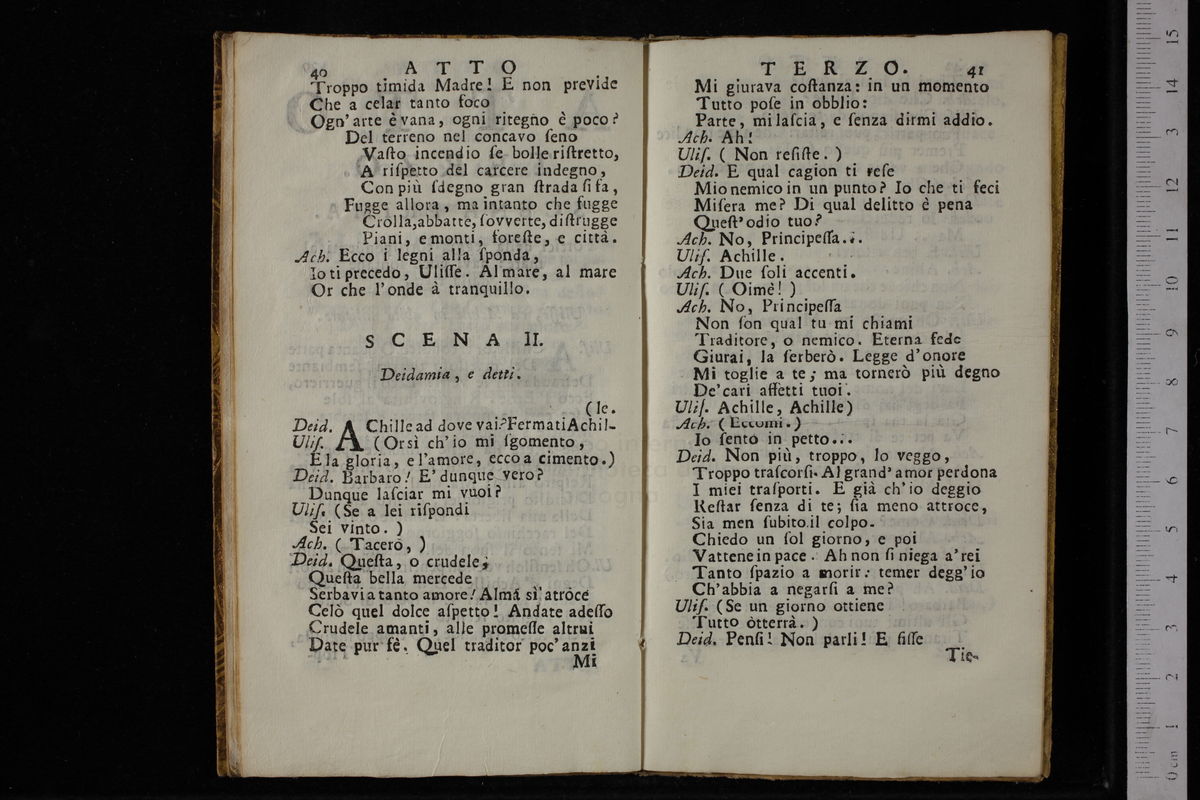 40 ATTO
Troppo timida Madre! E non previde
Che a celar tanto foco
Ogn'arte è vana, ogni ritegno è poco?
Del terreno nel concavo ſeno
Vaſto incendio ſe bolle riſtretto,
A riſpetto del carcere indegno,
Con più ſdegno gran ſtrada ſi fa,
Fugge allora, ma intanto che fugge
Crolla, abbatte, ſovverte, diſtrugge
Piani, e monti, foreſte, e città.
Ach. Ecco i legni alla ſponda,
Io ti precedo, Uliſſe. Al mare, al mare
Or che l'onde à tranquillo.
SCENA II.
Deidamia, e detti.
(le.
Deid. AChille ad dove vai? Fermati Achil-
Uliſ. (Orsì ch'io mi ſgomento,
E la gloria, e l'amore, ecco a cimento.)
Deid. Barbaro! E' dunque vero?
Dunque laſciar mi vuoi?
Uliſ. (Se a lei riſpondi
Sei vinto.)
Ach. (Tacerò,)
Deid. Queſta, o crudele;
Queſta bella mercede
Serbavi a tanto amore! Almá sì atroce
Celò quel dolce aſpetto! Andate adeſſo
Crudele amanti, alle promeſſe altrui
Date pur fè. Quel traditor poc'anzi
Mi
TERZO. 41
Mi giurava coſtanza: in un momento
Tutto poſe in obblio:
Parte, mi laſcia, e ſenza dirmi addio.
Ach. Ah!
Uliſ. (Non reſiſte.)
Deid. E qual cagion ti reſe
Mio nemico in un punto? Io che ti feci
Miſera me? Di qual delitto è pena
Queſt'odio tuo?
Ach. No, Principeſſa...
Uliſ. Achille.
Ach. Due ſoli accenti.
Uliſ. (Oimè!)
Ach. No, Principeſſa
Non ſon qual tu mi chiami
Traditore, o nemico. Eterna fede
Giurai, la ſerberò. Legge d'onore
Mi toglie a te; ma tornerò più degno
De'cari affetti tuoi.
Uliſ. Achille, Achille)
Ach. (Eccomi.)
Io ſento in petto...
Deid. Non più, troppo, lo veggo,
Troppo traſcorſi. Al grand'amor perdona
I miei traſporti. E già ch'io deggio
Reſtar ſenza di te; ſia meno attroce,
Sia men ſubito il colpo.
Chiedo un ſol giorno, e poi
Vattene in pace. Ah non ſi niega a'rei
Tanto ſpazio a morir: temer degg'io
Ch'abbia a negarſi a me?
Uliſ. (Se un giorno ottiene
Tutto òtterrà.)
Deid. Penſi! Non parli! E fiſſe
Tie-